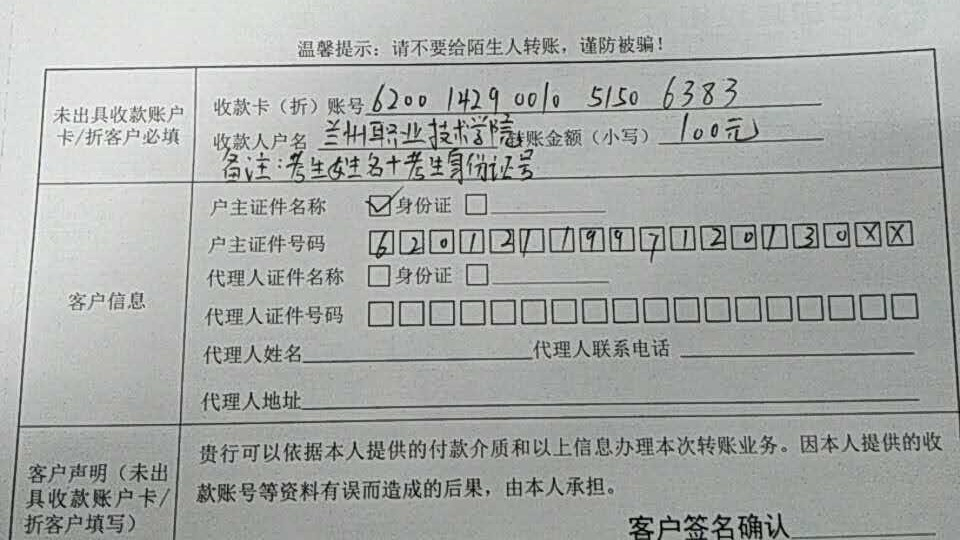 温馨提示：请不要给陌生人转账，谨防被骗！
未出具收款账户
卡/折客户必填
收款卡（折）账号 6200 1429 0010 5150 6383
收款人户名 兰州职业技术学院 转账金额（小写） 100元
备注：考生姓名+考生身份证号
客户信息
户主证件名称 ☑身份证 □
户主证件号码 6 2 0 1 2 1 1 9 9 7 1 2 0 1 3 0 X X
代理人证件名称 □身份证 □
代理人证件号码
代理人姓名 代理人联系电话
代理人地址
客户声明（未出
具收款账户卡/
折客户填写）
贵行可以依据本人提供的付款介质和以上信息办理本次转账业务。因本人提供的收
款账号等资料有误而造成的后果，由本人承担。
客户签名确认